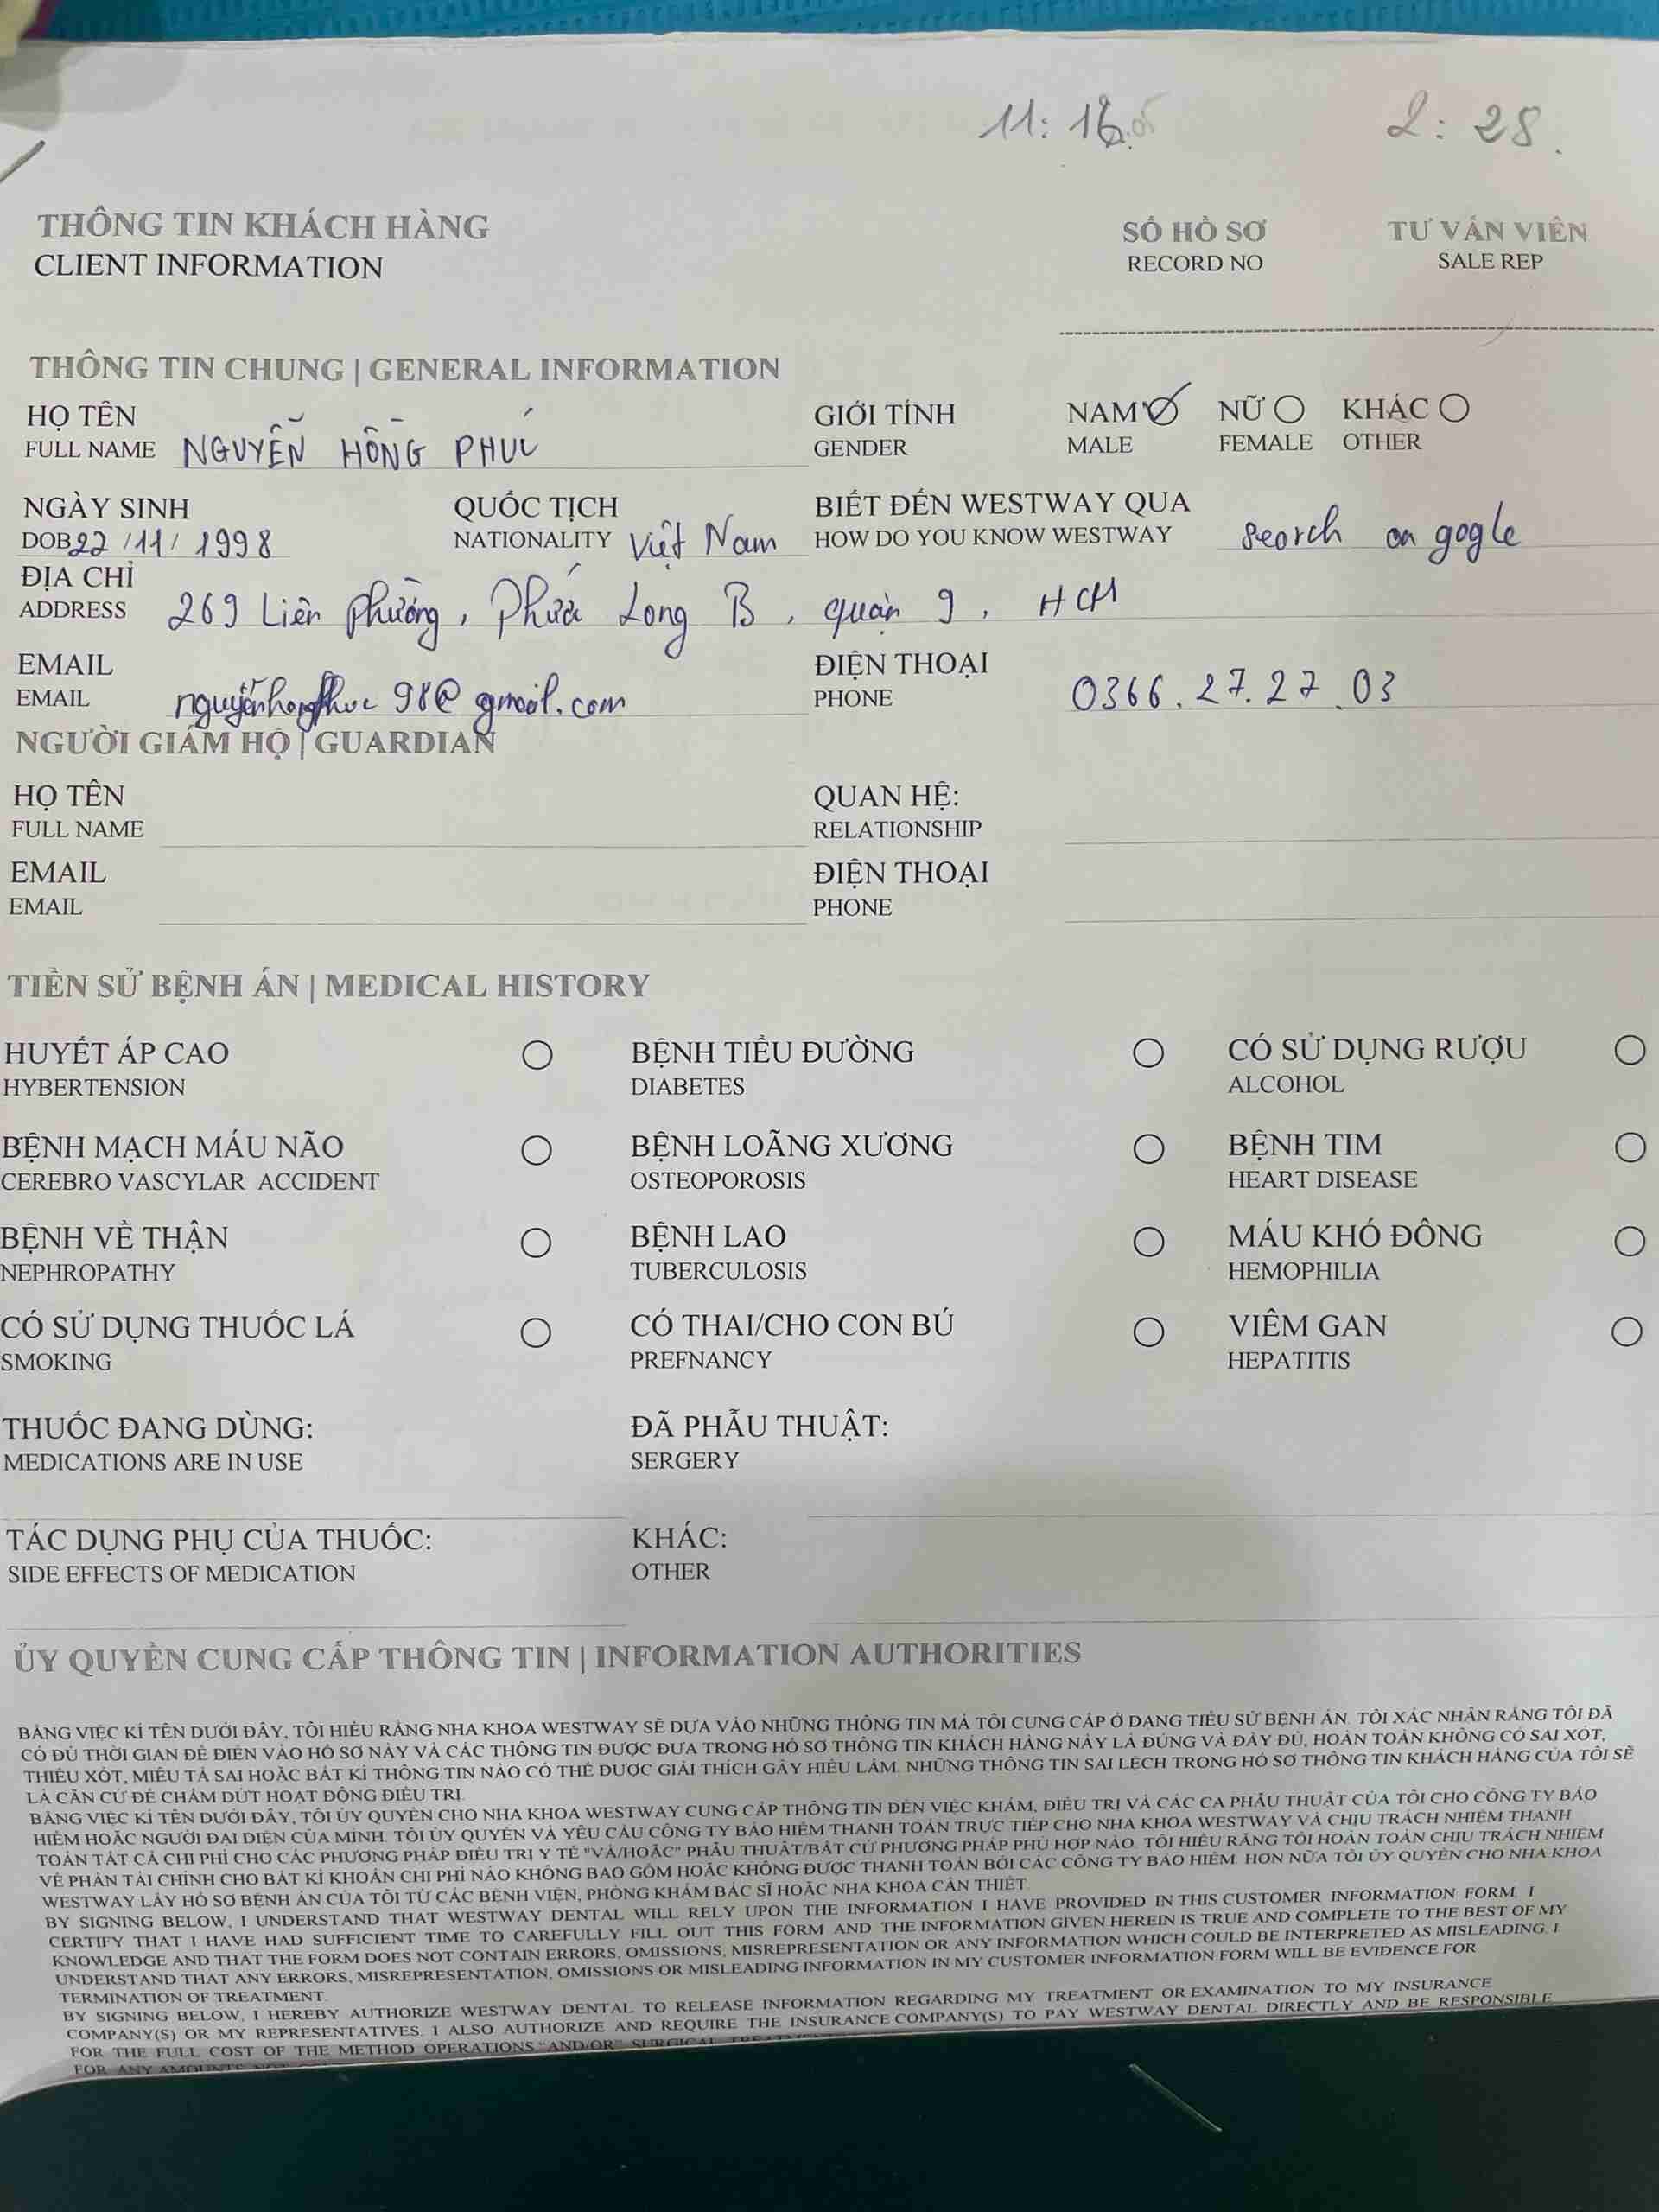 11: 16
2: 28.
THÔNG TIN KHÁCH HÀNG
CLIENT INFORMATION
SỐ HỒ SƠ
RECORD NO
TƯ VẤN VIÊN
SALE REP
THÔNG TIN CHUNG | GENERAL INFORMATION
HỌ TÊN
FULL NAME NGUYỄN HỒNG PHÚC
GIỚI TÍNH
GENDER
NAM NỮ KHÁC
MALE FEMALE OTHER
NGÀY SINH
DOB 22 / 11 / 1998
QUỐC TỊCH
NATIONALITY Việt Nam
BIẾT ĐẾN WESTWAY QUA
HOW DO YOU KNOW WESTWAY search on gogle
ĐỊA CHỈ
ADDRESS 269 Liên Phường, Phước Long B, quận 9, HCM
EMAIL
EMAIL nguyenhongphuc98@gmail.com
ĐIỆN THOẠI
PHONE 0366.27.27.03
NGƯỜI GIÁM HỘ | GUARDIAN
HỌ TÊN
FULL NAME
QUAN HỆ:
RELATIONSHIP
EMAIL
EMAIL
ĐIỆN THOẠI
PHONE
TIỀN SỬ BỆNH ÁN | MEDICAL HISTORY
HUYẾT ÁP CAO
HYBERTENSION
BỆNH TIỂU ĐƯỜNG
DIABETES
CÓ SỬ DỤNG RƯỢU
ALCOHOL
BỆNH MẠCH MÁU NÃO
CEREBRO VASCYLAR ACCIDENT
BỆNH LOÃNG XƯƠNG
OSTEOPOROSIS
BỆNH TIM
HEART DISEASE
BỆNH VỀ THẬN
NEPHROPATHY
BỆNH LAO
TUBERCULOSIS
MÁU KHÓ ĐÔNG
HEMOPHILIA
CÓ SỬ DỤNG THUỐC LÁ
SMOKING
CÓ THAI/CHO CON BÚ
PREFNANCY
VIÊM GAN
HEPATITIS
THUỐC ĐANG DÙNG:
MEDICATIONS ARE IN USE
ĐÃ PHẪU THUẬT:
SERGERY
TÁC DỤNG PHỤ CỦA THUỐC:
SIDE EFFECTS OF MEDICATION
KHÁC:
OTHER
ỦY QUYỀN CUNG CẤP THÔNG TIN | INFORMATION AUTHORITIES
BẰNG VIỆC KÍ TÊN DƯỚI ĐÂY, TÔI HIỂU RẰNG NHA KHOA WESTWAY SẼ DỰA VÀO NHỮNG THÔNG TIN MÀ TÔI CUNG CẤP Ở DẠNG TIỂU SỬ BỆNH ÁN. TÔI XÁC NHẬN RẰNG TÔI ĐÃ
CÓ ĐỦ THỜI GIAN ĐỂ ĐIỀN VÀO HỒ SƠ NÀY VÀ CÁC THÔNG TIN ĐƯỢC ĐƯA TRONG HỒ SƠ THÔNG TIN KHÁCH HÀNG NÀY LÀ ĐÚNG VÀ ĐẦY ĐỦ, HOÀN TOÀN KHÔNG CÓ SAI XÓT,
THIẾU XÓT, MIÊU TẢ SAI HOẶC BẤT KÌ THÔNG TIN NÀO CÓ THỂ ĐƯỢC GIẢI THÍCH GÂY HIỂU LẦM. NHỮNG THÔNG TIN SAI LỆCH TRONG HỒ SƠ THÔNG TIN KHÁCH HÀNG CỦA TÔI SẼ
LÀ CĂN CỨ ĐỂ CHẤM DỨT HOẠT ĐỘNG ĐIỀU TRỊ.
BẰNG VIỆC KÍ TÊN DƯỚI ĐÂY, TÔI ỦY QUYỀN CHO NHA KHOA WESTWAY CUNG CẤP THÔNG TIN ĐẾN VIỆC KHÁM, ĐIỀU TRỊ VÀ CÁC CA PHẪU THUẬT CỦA TÔI CHO CÔNG TY BẢO
HIỂM HOẶC NGƯỜI ĐẠI DIỆN CỦA MÌNH. TÔI ỦY QUYỀN VÀ YÊU CẦU CÔNG TY BẢO HIỂM THANH TOÁN TRỰC TIẾP CHO NHA KHOA WESTWAY VÀ CHỊU TRÁCH NHIỆM THANH
TOÁN TẤT CẢ CHI PHÍ CHO CÁC PHƯƠNG PHÁP ĐIỀU TRỊ Y TẾ "VÀ/HOẶC" PHẪU THUẬT/BẤT CỨ PHƯƠNG PHÁP PHÙ HỢP NÀO. TÔI HIỂU RẰNG TÔI HOÀN TOÀN CHỊU TRÁCH NHIỆM
VỀ PHẦN TÀI CHÍNH CHO BẤT KÌ KHOẢN CHI PHÍ NÀO KHÔNG BAO GỒM HOẶC KHÔNG ĐƯỢC THANH TOÁN BỞI CÁC CÔNG TY BẢO HIỂM. HƠN NỮA TÔI ỦY QUYỀN CHO NHA KHOA
WESTWAY LẤY HỒ SƠ BỆNH ÁN CỦA TÔI TỪ CÁC BỆNH VIỆN, PHÒNG KHÁM BÁC SĨ HOẶC NHA KHOA CẦN THIẾT.
BY SIGNING BELOW, I UNDERSTAND THAT WESTWAY DENTAL WILL RELY UPON THE INFORMATION I HAVE PROVIDED IN THIS CUSTOMER INFORMATION FORM. I
CERTIFY THAT I HAVE HAD SUFFICIENT TIME TO CAREFULLY FILL OUT THIS FORM AND THE INFORMATION GIVEN HEREIN IS TRUE AND COMPLETE TO THE BEST OF MY
KNOWLEDGE AND THAT THE FORM DOES NOT CONTAIN ERRORS, OMISSIONS, MISREPRESENTATION OR ANY INFORMATION WHICH COULD BE INTERPRETED AS MISLEADING. I
UNDERSTAND THAT ANY ERRORS, MISREPRESENTATION, OMISSIONS OR MISLEADING INFORMATION IN MY CUSTOMER INFORMATION FORM WILL BE EVIDENCE FOR
TERMINATION OF TREATMENT.
BY SIGNING BELOW, I HEREBY AUTHORIZE WESTWAY DENTAL TO RELEASE INFORMATION REGARDING MY TREATMENT OR EXAMINATION TO MY INSURANCE
COMPANY(S) OR MY REPRESENTATIVES. I ALSO AUTHORIZE AND REQUIRE THE INSURANCE COMPANY(S) TO PAY WESTWAY DENTAL DIRECTLY AND BE RESPONSIBLE
FOR THE FULL COST OF THE METHOD OPERATIONS "AND/OR" SURGICAL
FOR ANY AMOUNTS